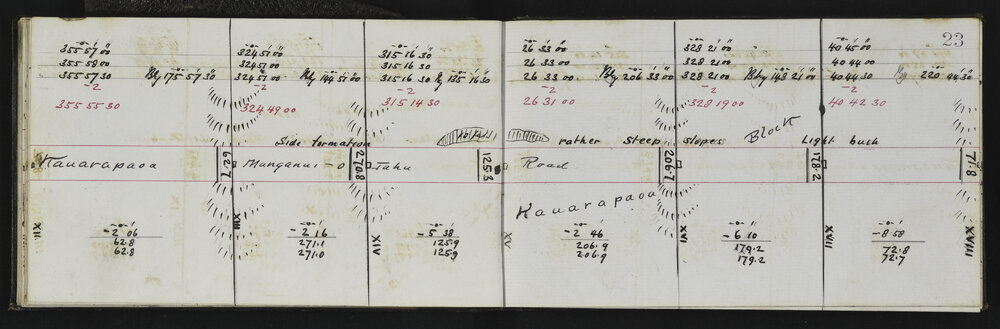 23
355° 57' 00"
355 58 00
355 57 30 Bkg 175° 57' 30"
-2
355 55 30
324° 51' 00"
324 51 00
324 51 00 Bkg 144° 51' 00"
-2
324 49 00
315° 16' 30"
315 16 30
315 16 30 Bkg 135° 16' 30"
-2
315 14 30
26° 33' 00"
26 33 00
26 33 00 Bkg 206° 33' 00"
-2
26 31 00
328° 21' 00"
328 21 00
328 21 00 Bkg 148° 21' 00"
-2
328 19 00
40° 45' 00"
40 44 00
40 44 30 Bg 220° 44' 30"
-2
40 42 30
Side formation rather Steep slopes Block Light bush
Kauarapaoa 62.7 Mangānui-o 270.8 Tahu 125.3 Road 206.7 178.2 71.8
Kauarapaoa
XII
-2° 06'
62.8
62.8
XIII
-2° 16'
271.1
271.0
XIV
-5° 38'
125.9
125.9
XV
-2° 46'
206.9
206.9
XVI
-6° 10'
179.2
179.2
XVII
-8° 58'
72.8
72.7
XVIII